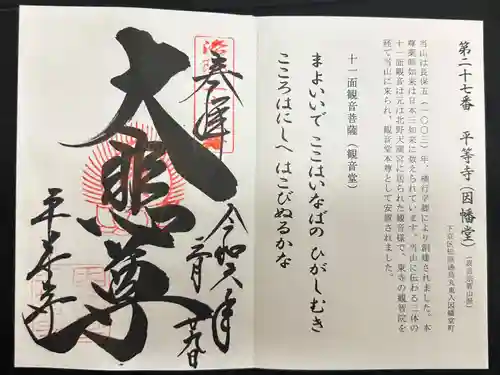 第二十七番 平等寺（因幡堂）
（真言宗智山派）
下京区松原通烏丸東入因幡堂町
当山は長保五（一〇〇三）年、橘行平卿により創建されました。本
尊薬師如来は日本三如来に数えられています。当山に伝わる三体の
十一面観音は元は北野天満宮に居られた観音様で、東寺の観智院を
経て当山に来られ、観音堂本尊として安置されました。
十一面観音菩薩（観音堂）
まよいいで ここはいなばの ひがしむき
こころはにしへ はこびぬるかな
奉拝
大悲尊
令和六年
三月
廿九日
平等寺